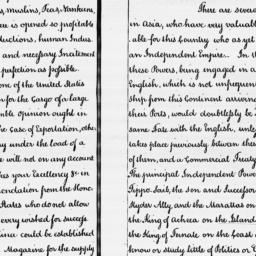 , Muslins, Teas, Nankeens,
re is opened so profitable
ductions, human Indus
and necessary Incitement
perfection as possible.
one of the United States
n for the Cargo of a large
able Opinion ought in
the Case of Exportation, othe
y under the load of a
e will not on any account
kes your Excellency &c in
endation from the Hono.
States who do not allow
every wished for success
ince could be established
Magazine for the supply
There are severa
in Asia, who have very valuabl
able for this Country who as yet
an Independent Empire. In th
these Powers, being engaged in a
English, which is not unfrequen
ship from this Continent arrivin
their Ports, would doubtless be I
same Fate with the English, unle
takes place previously between thes
of them, and a Commercial Treaty
The principal Independent Powe
Tippo Saib, the Son and Successor
Hyder Ally, and the Marattas on
the King of Acheen on the Island
the King of Ternate on the Coast o
know or study little of Politics or C